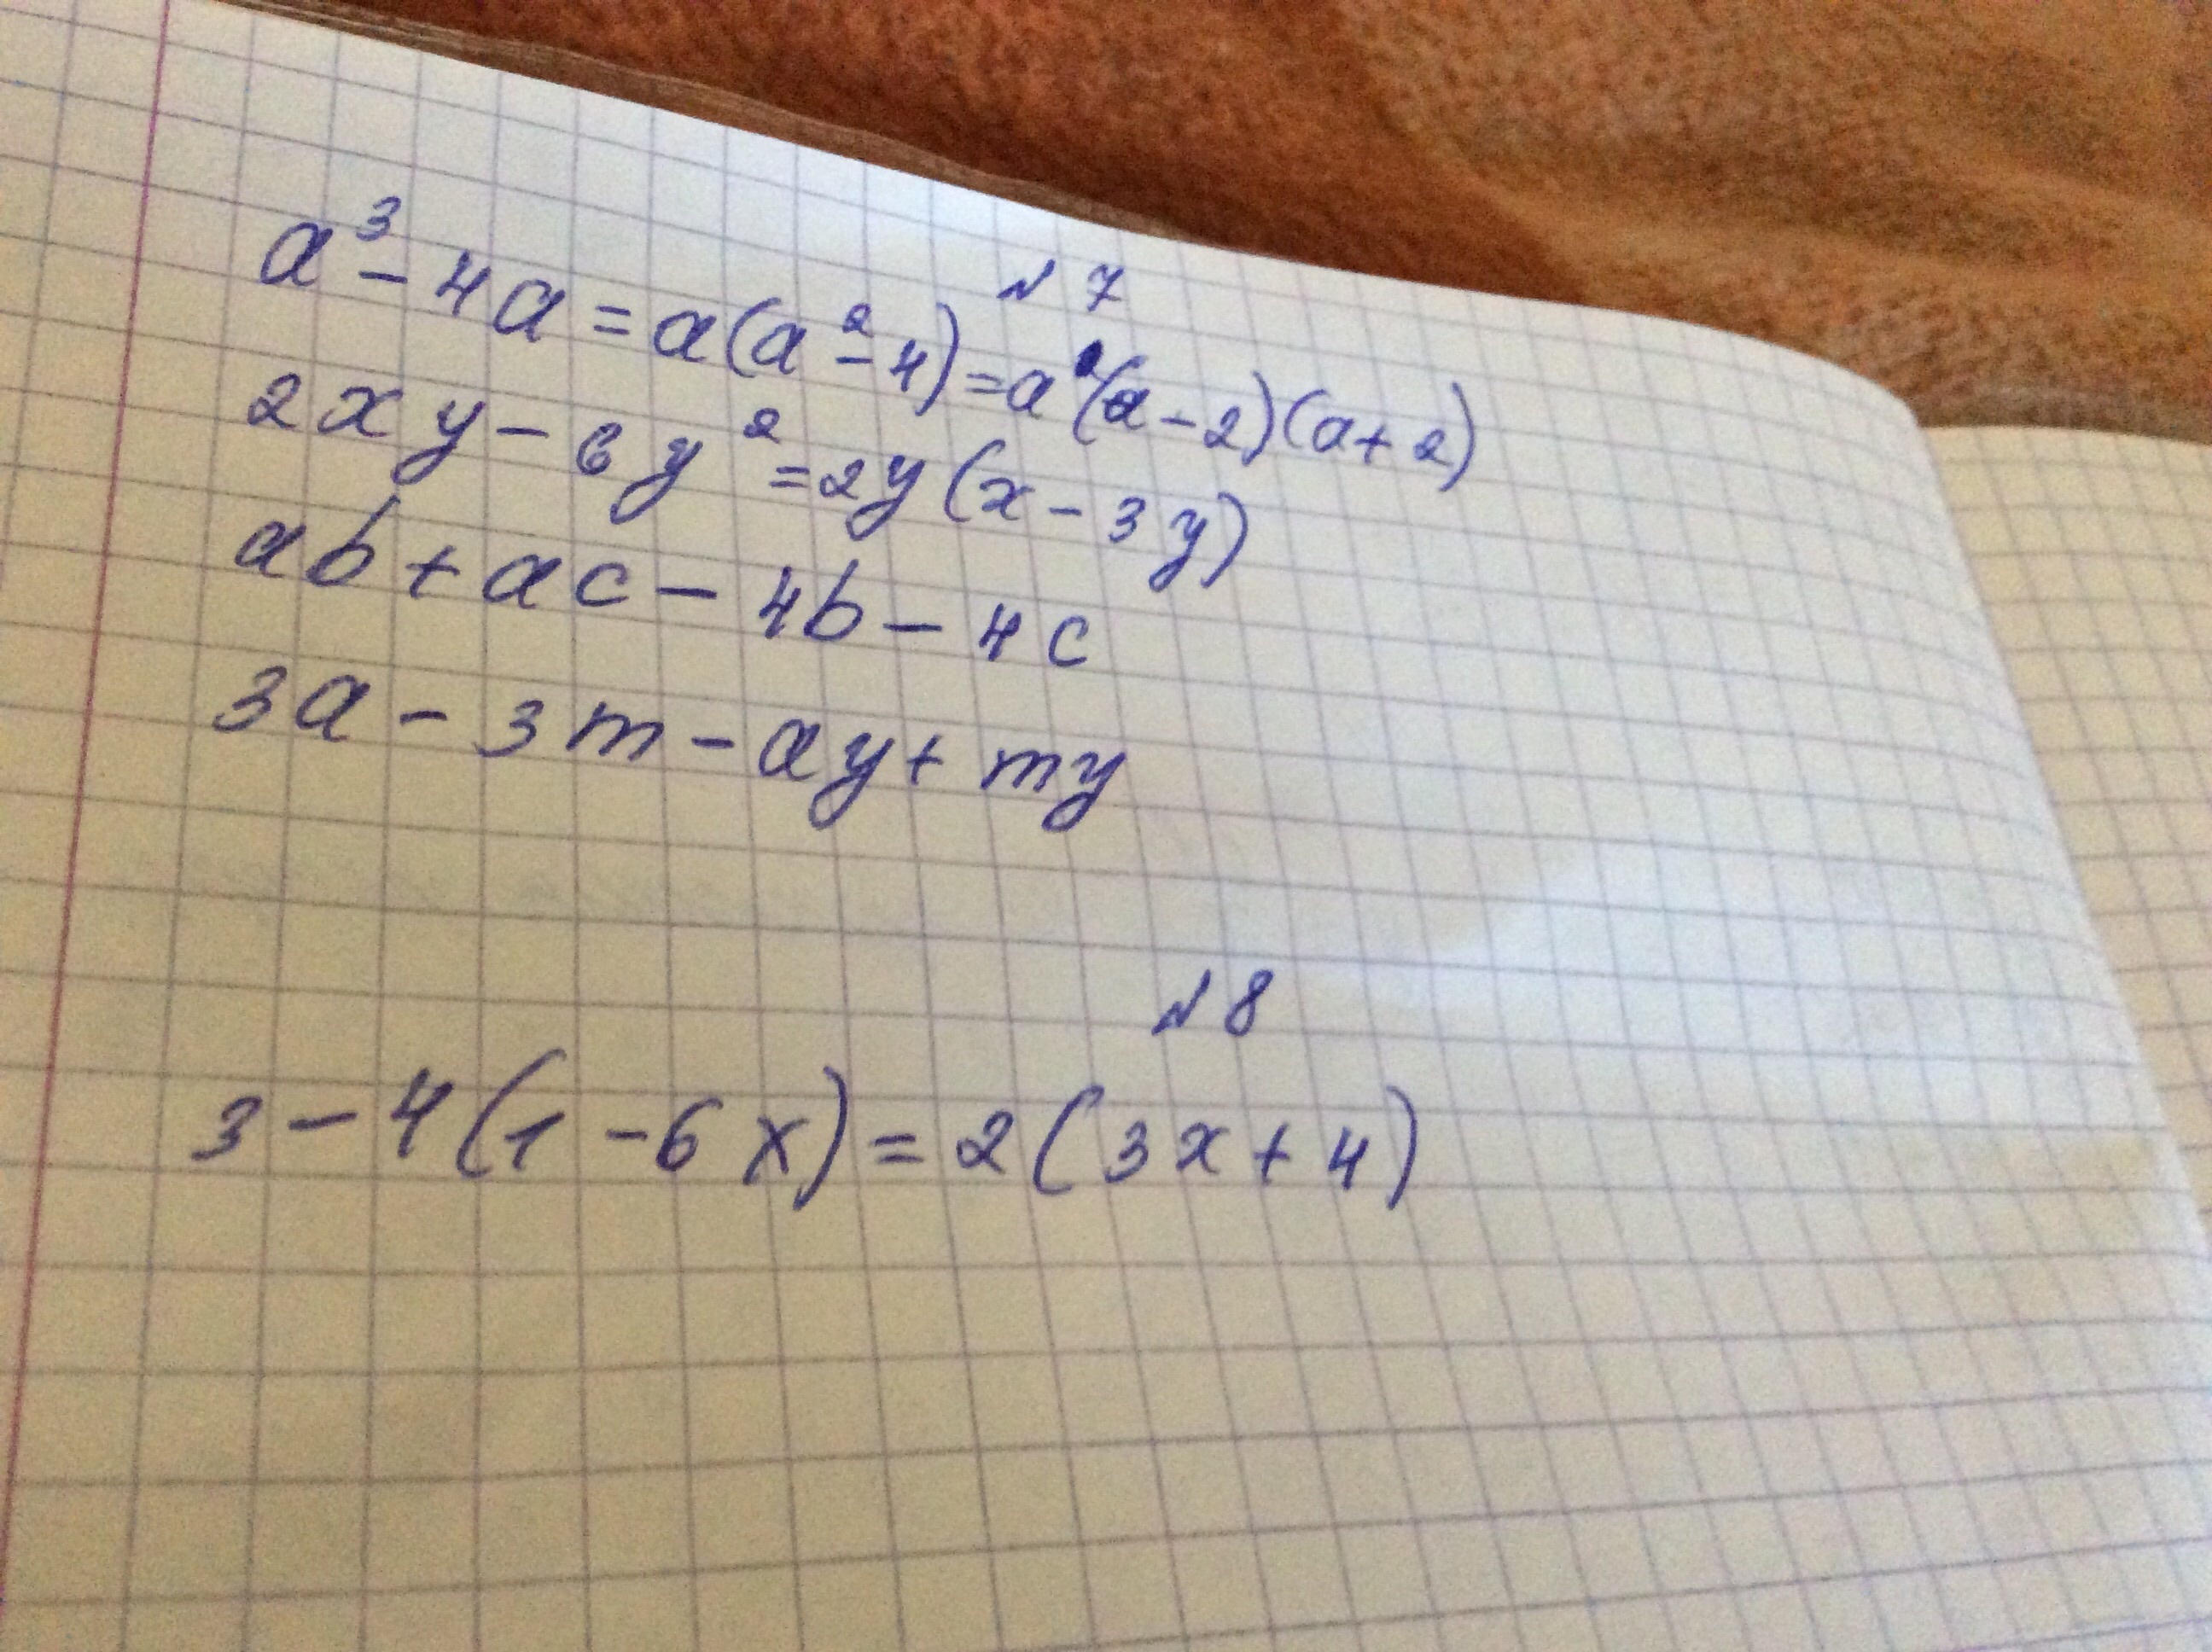 № 7
a³ - 4a = a(a² - 4) = a(a - 2)(a + 2)
2xy - 6y² = 2y(x - 3y)
ab + ac - 4b - 4c
3a - 3m - ay + my
№ 8
3 - 4(1 - 6x) = 2(3x + 4)